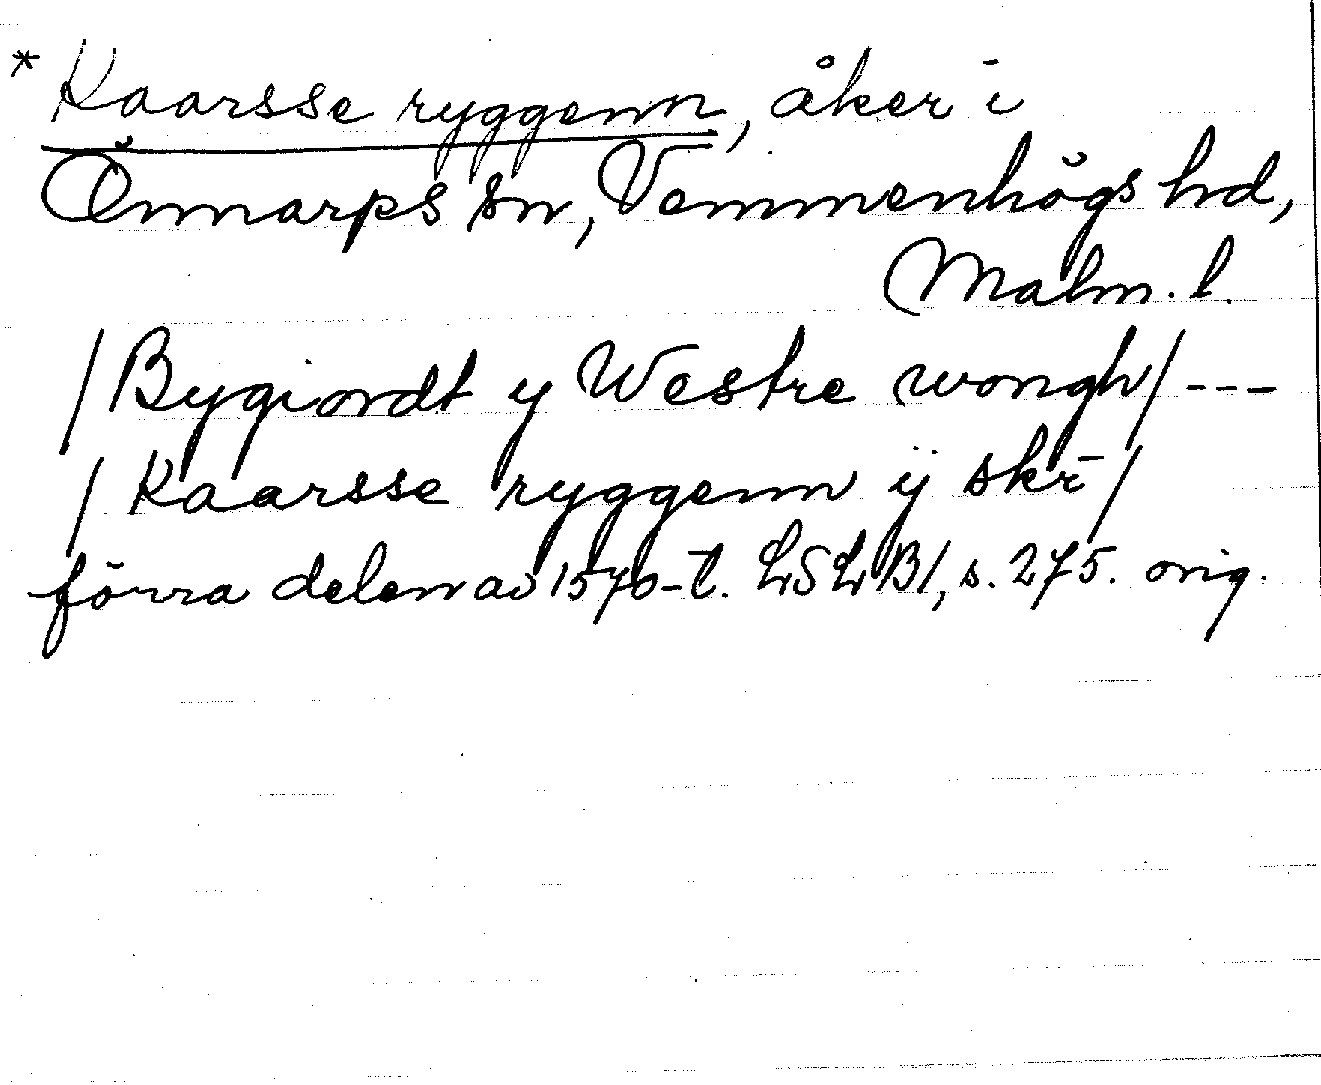 * Kaarsse ryggenn, åker i
Önnarps sn, Vemmenhögs hd,
Malm. l.
/Bygiordt y Westre wongh/ ---
/Kaarsse ryggenn ÿ skr̄/
förra delen av 1570-t. LSLB1, s. 275. orig.